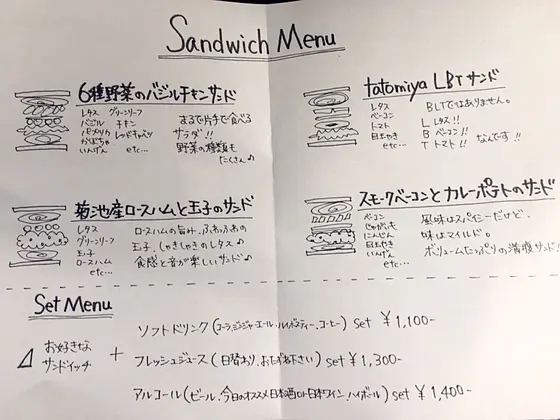 Sandwich Menu
6種野菜のバジルチキンサンド
レタス グリーンリーフ
バジル チキン
パプリカ レッドキャベツ
かぼちゃ
いんげん etc...
まるで片手で食べる
サラダ!!
野菜の種類も
たくさん♪
tatomiya LBTサンド
レタス
ベーコン
トマト
目玉やき
etc...
BLTではありません。
L レタス!!
B ベーコン!!
T トマト!! なんです!!
菊池産ロースハムと玉子のサンド
レタス
グリーンリーフ
玉子
ロースハム
etc...
ロースハムの旨み、ふわふわの
玉子、しゃきしゃきのレタス♪
食感と音が楽しいサンド♪
スモークベーコンとカレーポテトのサンド
ベーコン
じゃがいも
にんじん
目玉やき
いんげん
etc...
風味はスパイシーだけど、
味はマイルド。
ボリュームたっぷりの満腹サンド!
Set Menu
お好きな
サンドイッチ
+
ソフトドリンク(コーラ、ジンジャーエール、ルイボスティー、コーヒー) set ¥1,100-
フレッシュジュース(日替わり、おたずね下さい) set ¥1,300-
アルコール(ビール、今日のオススメ日本酒or日本ワイン、ハイボール) set ¥1,400-